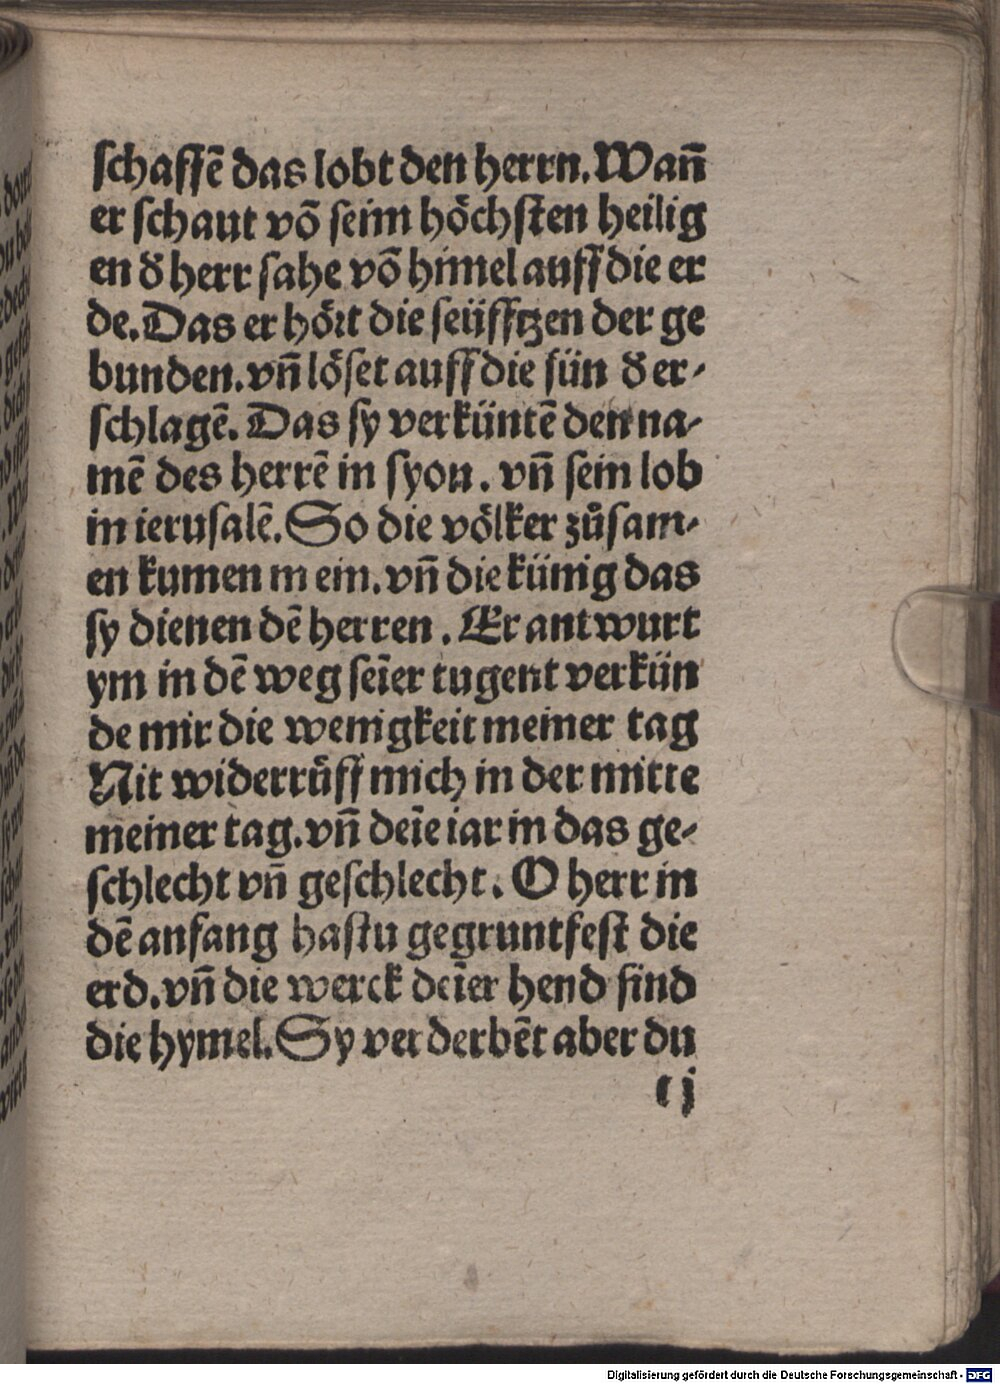 ſchaffē das lobt den herrn. Wan̄
er ſchaut vō ſeim höchſten heilig
en ð herr ſahe vō himel auff die er
de. Das er hört die ſeüfftzen der ge
bunden. vn̄ löſet auff die ſün ð er-
ſchlagē. Das ſy verküntē den na-
mē des herrē in ſyon. vn̄ ſein lob
in ieruſalē. So die völker zůſam-
en kumen in ein. vn̄ die künig das
ſy dienen dē herren. Er antwurt
ym in dē weg ſeīer tugent verkün
de mir die wenigkeit meiner tag
Nit widerrůff mich in der mitte
meiner tag. vn̄ deīe iar in das ge-
ſchlecht vn̄ geſchlecht. O herr in
dē anfang haſtu gegruntfeſt die
erd. vn̄ die werck deīer hend ſind
die hymel. Sy verderbēt aber du
Digitalisierung gefördert durch die Deutsche Forschungsgemeinschaft - DFG